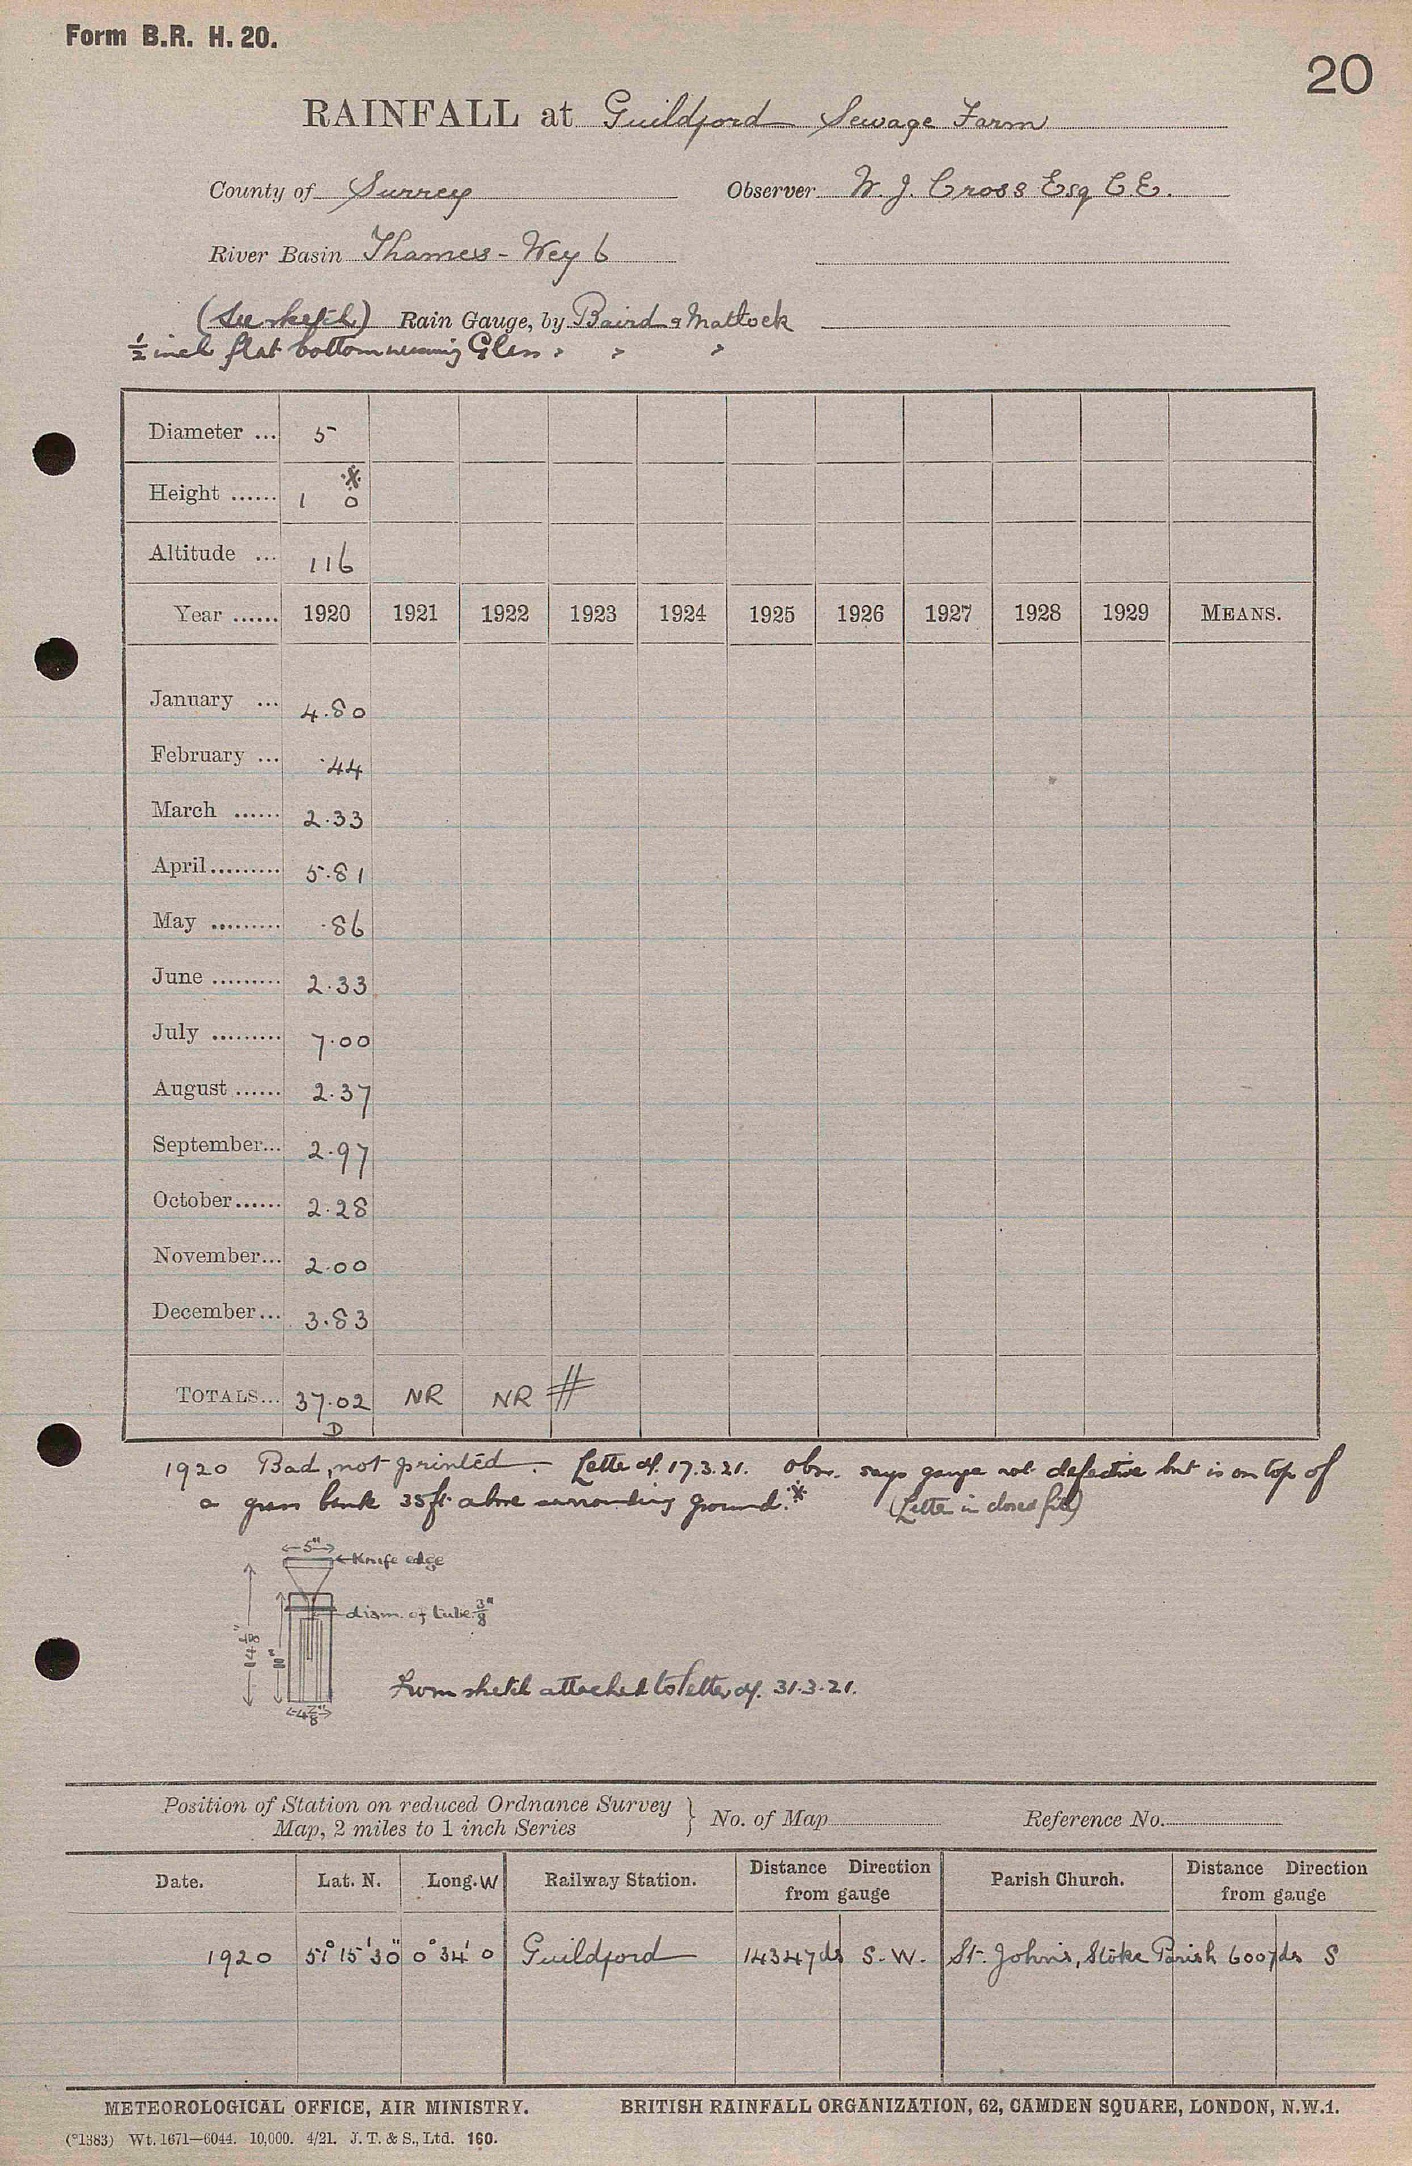 Form B.R. H. 20.
20
RAINFALL at Guildford Sewage Farm
County of Surrey Observer W. J. Cross Esq C.E.
River Basin Thames - Wey 6
(See sketch) Rain Gauge, by Baird & Mattock
½ inch flat bottom measuring Glass " " "
Diameter ... 5
Height ...... 1 0 *
Altitude ... 116
Year ...... 1920 1921 1922 1923 1924 1925 1926 1927 1928 1929 MEANS.
January ... 4.80
February ... .44
March ...... 2.33
April......... 5.81
May ......... .86
June ......... 2.33
July ......... 7.00
August ...... 2.37
September... 2.97
October...... 2.28
November... 2.00
December... 3.83
TOTALS... 37.02 NR NR #
D
1920 Bad, not printed. Letter of 17.3.21. Obsr. says gauge not defective but is on top of
a grass bank 35ft. above surrounding ground.* (Letter in closed file)
5"
Knife edge
diam. of tube 3/8"
14 1/8"
11"
4 7/8"
From sketch attached to letter of 31.3.21.
Position of Station on reduced Ordnance Survey
Map, 2 miles to 1 inch Series } No. of Map Reference No.
Date. Lat. N. Long. W Railway Station. Distance Direction from gauge Parish Church. Distance Direction from gauge
1920 51° 15' 30" 0° 34' 0 Guildford 1434 yds S.W. St. John's, Stoke Parish 600 yds S
METEOROLOGICAL OFFICE, AIR MINISTRY. BRITISH RAINFALL ORGANIZATION, 62, CAMDEN SQUARE, LONDON, N.W.1.
(*1383) Wt. 1671—6044. 10,000. 4/21. J. T. & S., Ltd. 160.